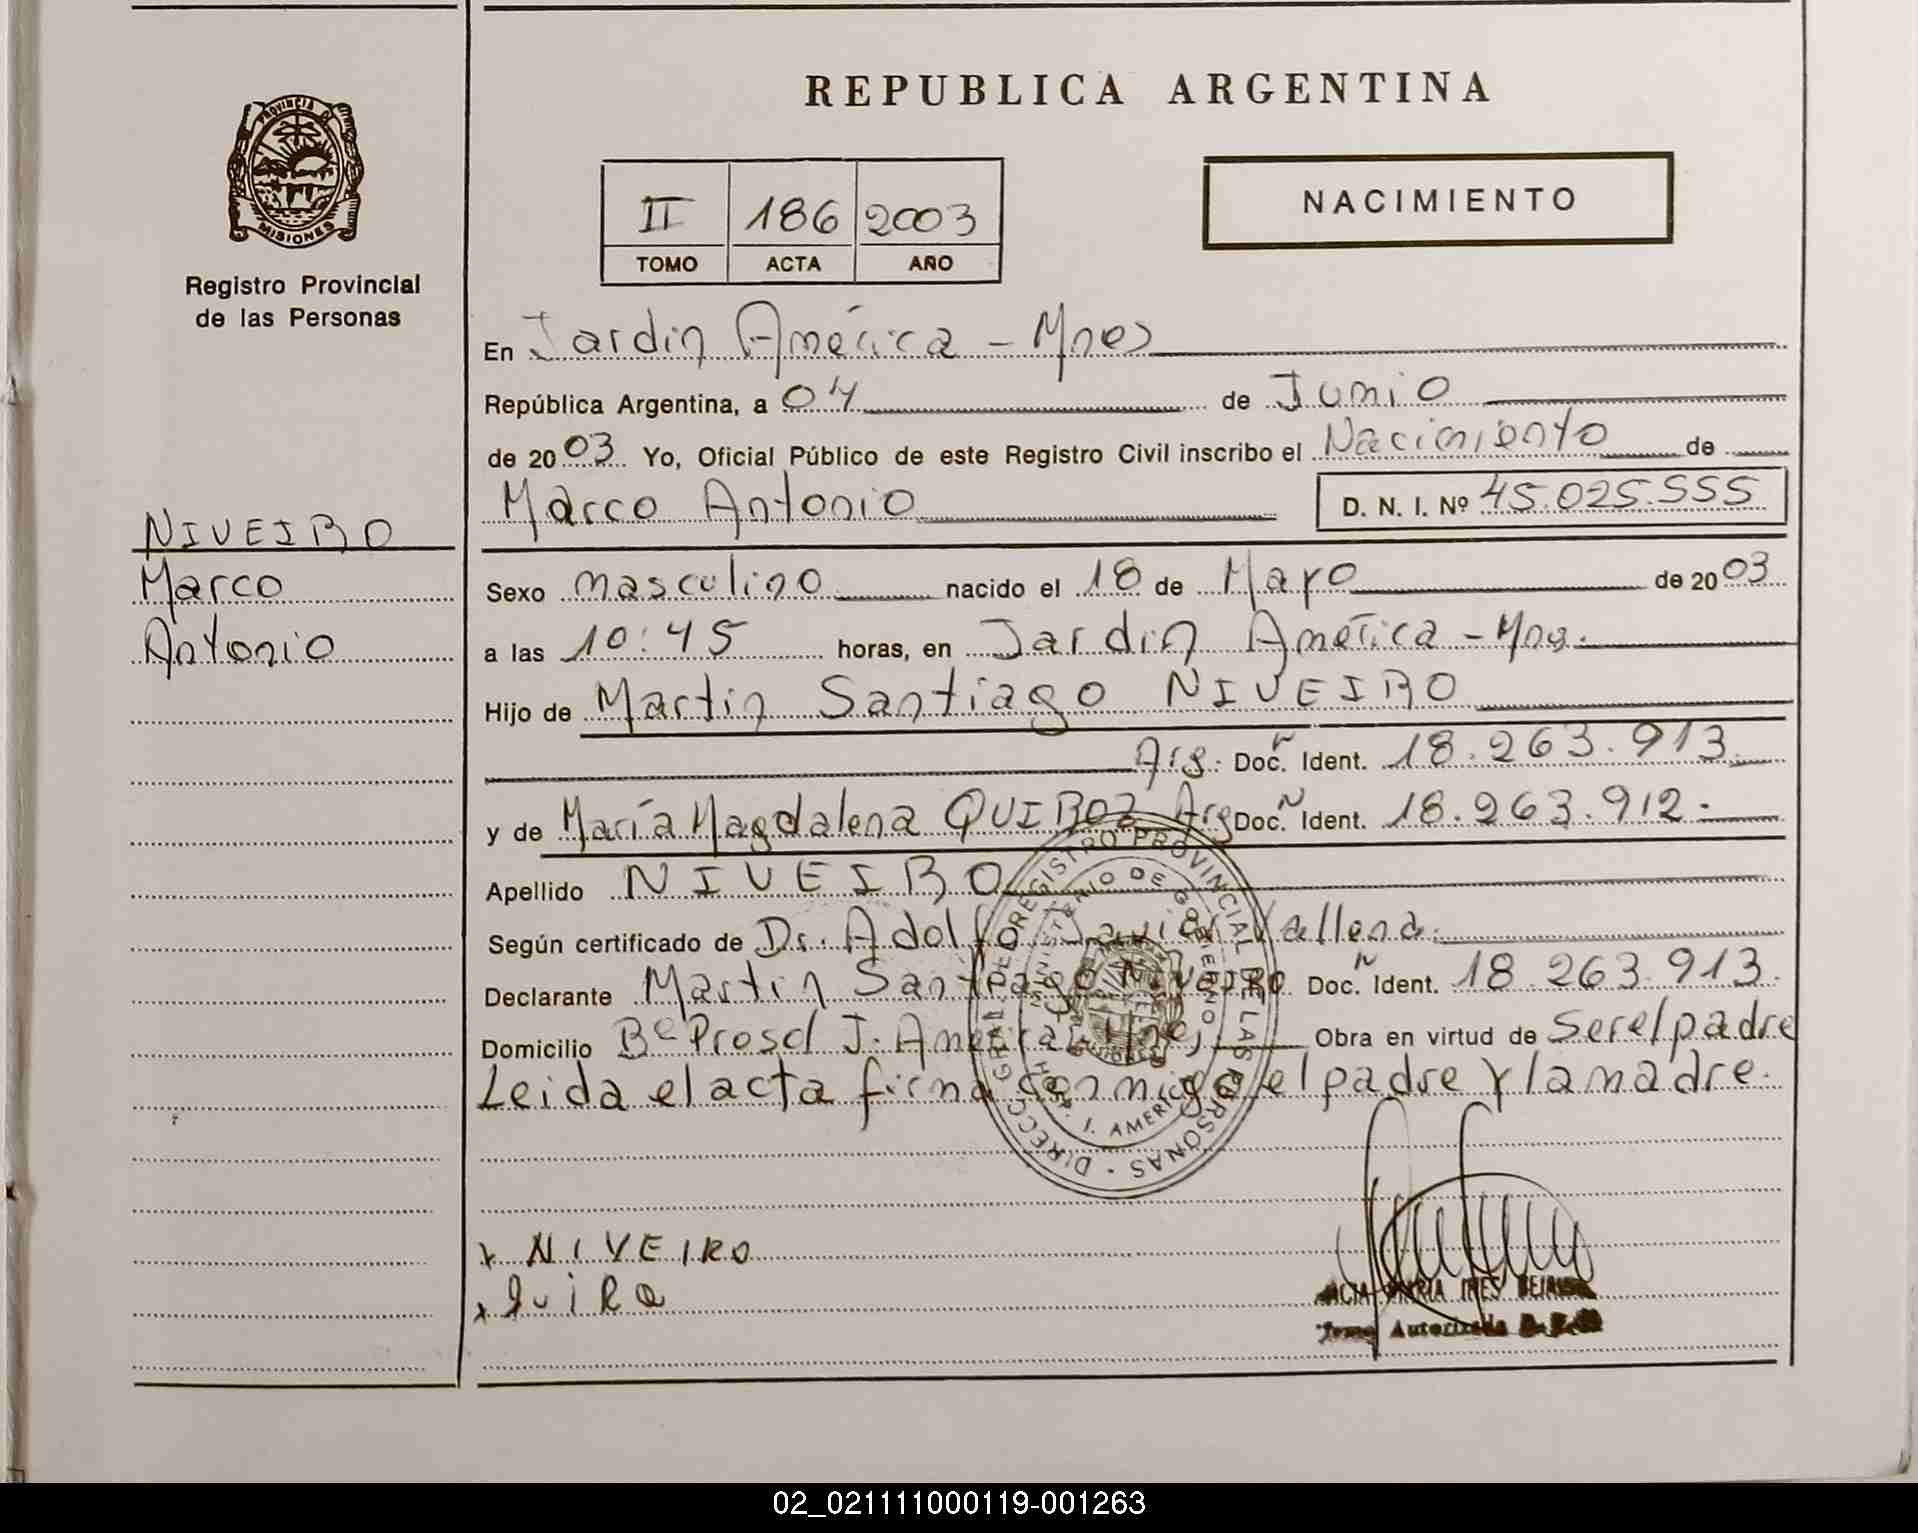 REPUBLICA ARGENTINA
PROVINCIA DE
MISIONES
Registro Provincial
de las Personas
II 186 2003
TOMO ACTA AÑO
NACIMIENTO
En Jardin América - Mnes
República Argentina, a 04 de Junio
de 2003 Yo, Oficial Público de este Registro Civil inscribo el Nacimiento de
Marco Antonio D. N. I. Nº 45.025.555
NIVEIRO
Marco
Antonio
Sexo masculino nacido el 18 de Mayo de 2003
a las 10:45 horas, en Jardin América - Mns.
Hijo de Martin Santiago NIVEIRO
Arg. Doc. Ident. 18.263.913
y de María Magdalena QUIROZ Arg Doc. Ident. 18.263.912.
Apellido NIVEIRO
Según certificado de Dr. Adolfo Javier Vallena
Declarante Martin Santiago Niveiro Doc. Ident. 18.263.913.
Domicilio Bº Prosol J. América, Mnes, Obra en virtud de ser el padre
Leida el acta firma conmigo el padre y la madre.
DIRECC. GRAL. DE REGISTRO PROVINCIAL DE LAS PERSONAS
MINISTERIO DE GOBIERNO
x NIVEIRO
x
MARIA INES
Autorizada
02_021111000119-001263